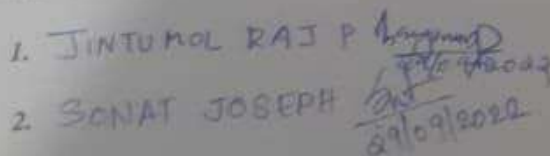 1. JINTUMOL RAJ P
29/09/2022
2. SONAT JOSEPH
29/09/2022